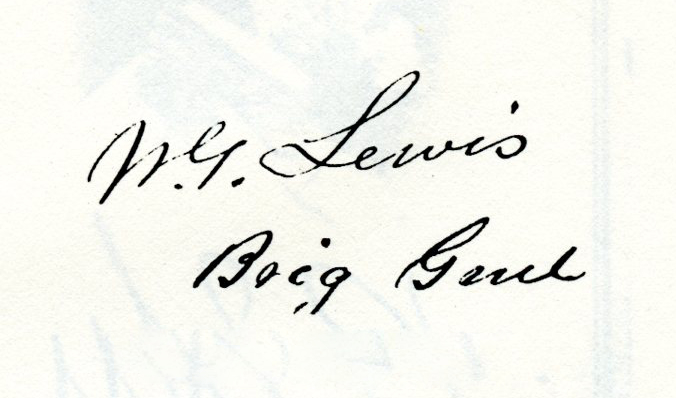 W.G. Lewis
Brig Genl